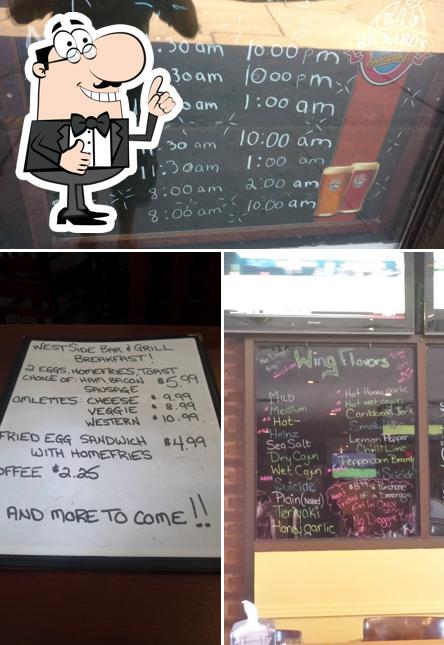 .30 am 10:00 pm
30am 10:00 pm
am 1:00 am
.30 am 10:00 am
11.30am 1:00 am
8:00 am 2:00 am
8:00 am 10:00 am
RICKARD'S
WESTSIDE BAR & GRILL
BREAKFAST!
2 EGGS, HOMEFRIES, TOAST
CHOICE OF: HAM, BACON $5.99
SAUSAGE
OMLETTES: CHEESE $9.99
VEGGIE $8.99
WESTERN $10.99
FRIED EGG SANDWICH $4.99
WITH HOMEFRIES
OFFEE $2.25
AND MORE TO COME!!
Wing Flavors
MILD
Medium
Hot
Heinz
Sea Salt
Dry Cajun
Wet Cajun
Suicide
Plain (Naked)
Teriyaki
Honey garlic
Hot Honey garlic
Hot wet cajun
Caribbean Jerk
Lemon Pepper
Chilli Lime
Peppercorn Brandy
Suicide
Purchase
of a beverage
Eat in Only
No Doggie